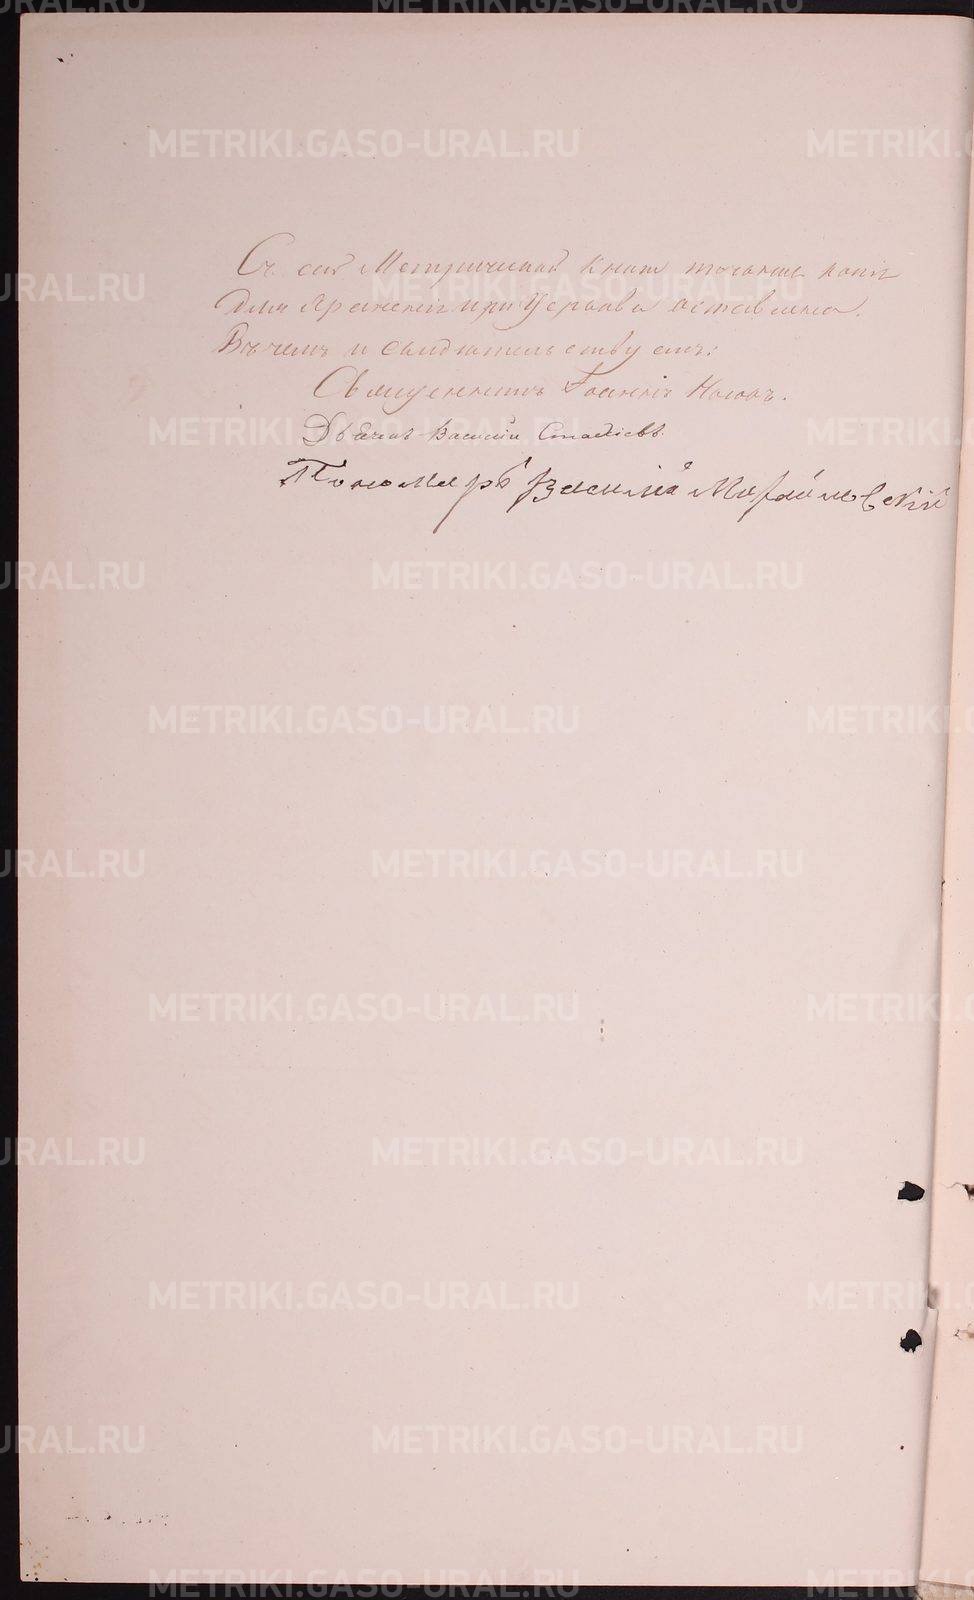 Съ сей Метрической книги точная копія
для храненія при Церкви оставлена.
Въ чемъ и свидѣтельствуемъ:
Священникъ Іоаннъ
Дьячекъ Василій
Пономарь Василій
METRIKI.GASO-URAL.RU